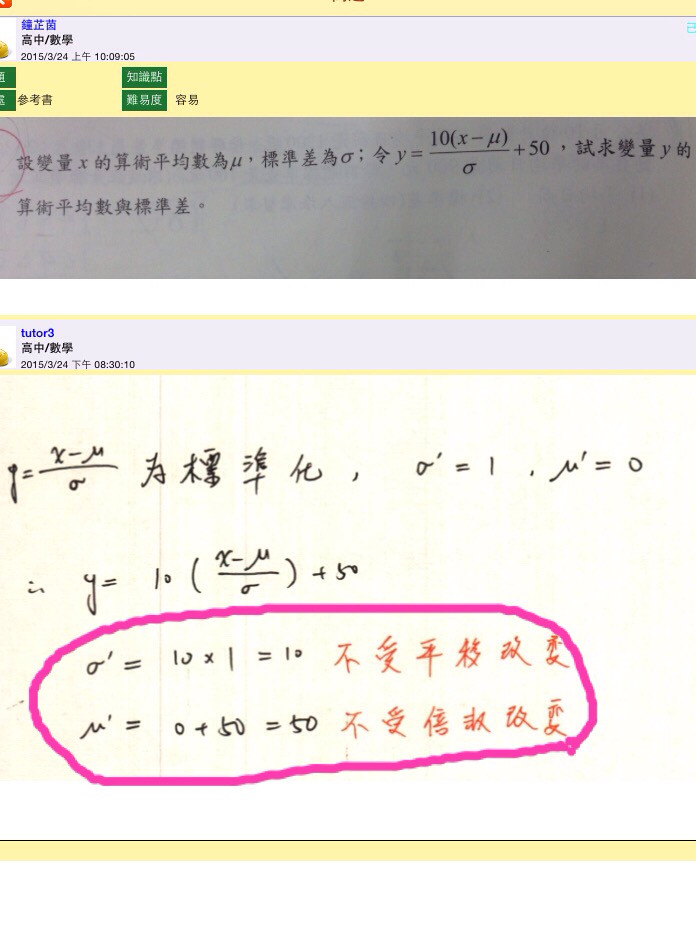 鐘芷茵
高中/數學
2015/3/24 上午 10:09:05
知識點
參考書
難易度 容易
設變量 x 的算術平均數為μ,標準差為σ;令 y = \frac{10(x-μ)}{σ} + 50 ,試求變量 y 的
算術平均數與標準差。
tutor3
高中/數學
2015/3/24 下午 08:30:10
y = \frac{x-μ}{σ} 為標準化, σ' = 1 , μ' = 0
∴ y = 10 ( \frac{x-μ}{σ} ) + 50
σ' = 10 × 1 = 10 不受平移改變
μ' = 0 + 50 = 50 不受倍數改變